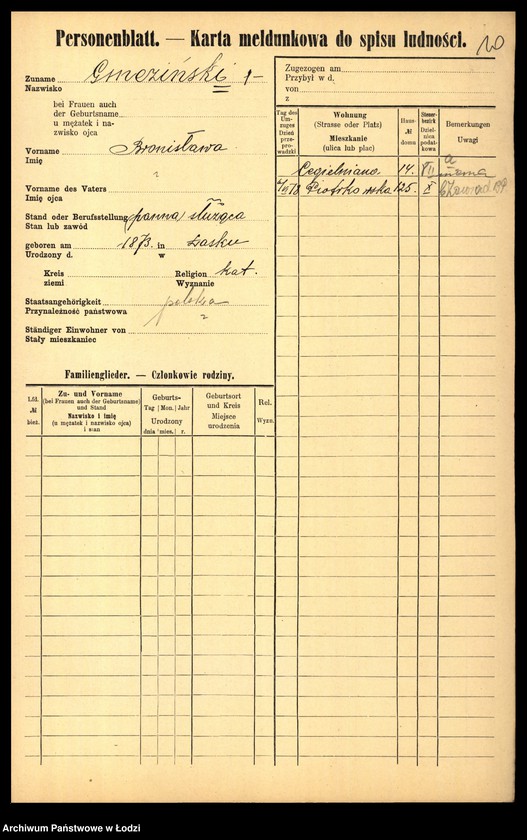 Personenblatt. — Karta meldunkowa do spisu ludności.
Zuname Gmeziński
Nazwisko
bei Frauen auch
der Geburtsname
u mężatek i na-
zwisko ojca
Vorname Bronisława
Imię
Vorname des Vaters
Imię ojca
Stand oder Berufsstellung panna służąca
Stan lub zawód
geboren am 1873. in Łasku
Urodzony d. w
Kreis Religion kat.
ziemi Wyznanie
Staatsangehörigkeit polska
Przynależność państwowa
Ständiger Einwohner von
Stały mieszkaniec
Familienglieder. — Członkowie rodziny.
Lfd. № bież.
Zu- und Vorname
(bei Frauen auch der Geburtsname)
und Stand
Nazwisko i imię
(u mężatek i nazwisko ojca)
i stan
Geburts-
Tag Mon. Jahr
Urodzony
dnia mies. r.
Geburtsort
und Kreis
Miejsce
urodzenia
Rel.
Wyzn.
Zugezogen am
Przybył w d.
von
z
Tag des
Um-
zuges
Dzień
prze-
prowadzki
Wohnung
(Strasse oder Platz)
Mieszkanie
(ulica lub plac)
Haus-
№
domu
Steuer-
bezirk
Dziel-
nica
podat-
kowa
Bemerkungen
Uwagi
Cegielniana 14. VII
18 Piotrkowska 125. X
Archiwum Państwowe w Łodzi